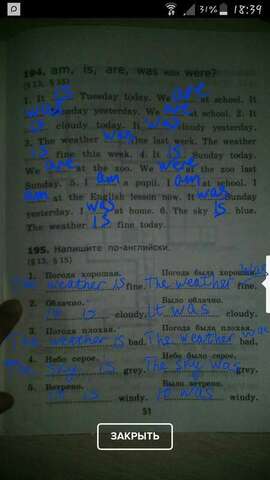 31% 18:39
194. am, is, are, was или were?
(§ 13, § 15)
1. It is Tuesday today. We are at school. It
was Sunday yesterday. We are at school. 2. It
is cloudy today. It was cloudy yesterday.
3. The weather was fine last week. The weather
is fine this week. 4. It is Sunday today.
We are at the zoo. We were at the zoo last
Sunday. 5. I am a pupil. I am at school. I
am at the English lesson now. It was Sunday
yesterday. I was at home. 6. The sky is blue.
The weather is fine today.
195. Напишите по-английски.
(§ 13, § 15)
1. Погода хорошая. Погода была хорошая.
The weather is fine. The weather was fine.
2. Облачно. Было облачно.
It is cloudy. It was cloudy.
3. Погода плохая. Погода была плохая.
The weather is bad. The weather was bad.
4. Небо серое. Небо было серое.
The sky is grey. The sky was grey.
5. Ветрено. Было ветрено.
It is windy. It was windy.
51
ЗАКРЫТЬ